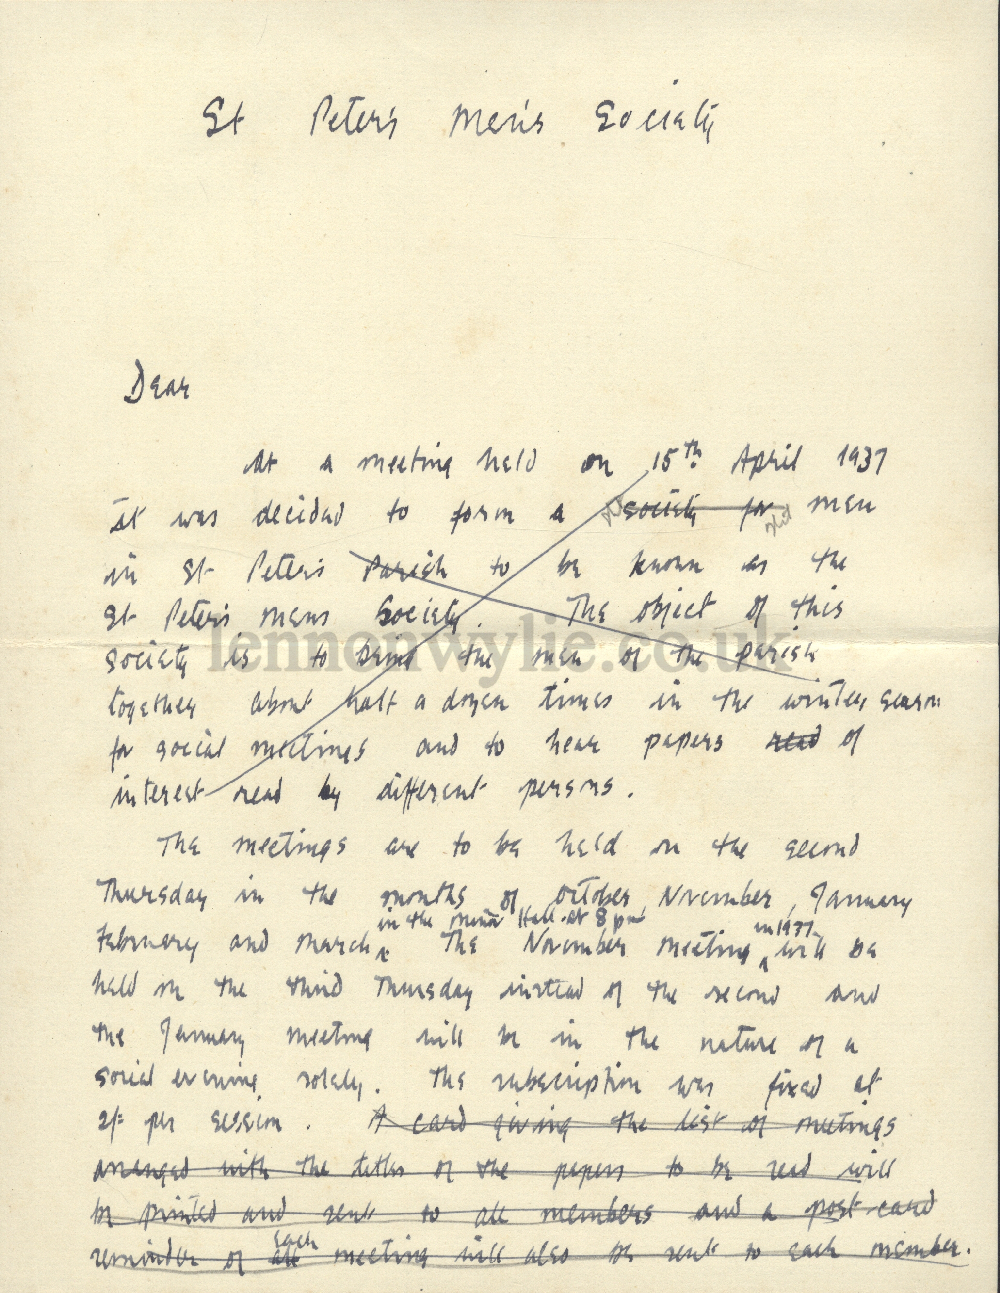 St Peter's Men's Society
Dear
At a meeting held on 15th April 1937
it was decided to form a society for men
in St Peter's Parish to be known as the
St Peter's mens Society. The object of this
society is to bring the men of the parish
together about half a dozen times in the winter season
for social meetings and to hear papers read of
interest read by different persons.
The meetings are to be held on the second
Thursday in the months of October, November, January
in the Minor Hall at 8 pm in 1937
February and March. The November meeting will be
held on the third Thursday instead of the second and
the January meeting will be in the nature of a
social evening solely. The subscription was fixed at
2/= per session. A card giving the list of meetings
arranged with the titles of the papers to be read will
be printed and sent to all members and a post card
each
reminder of all meeting will also be sent to each member.
lennonwylie.co.uk